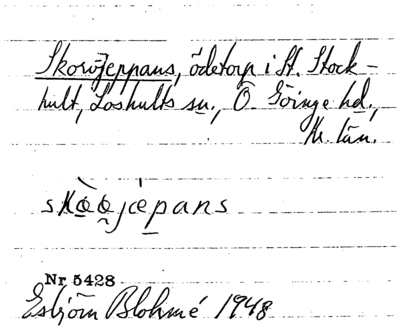 Skoröjeppans, ödetorp i St. Stock-
hult, Loshults sn., Ö. Göinge hd.,
Kr. län.
Nr 5428
Esbjörn Blohmé 1948